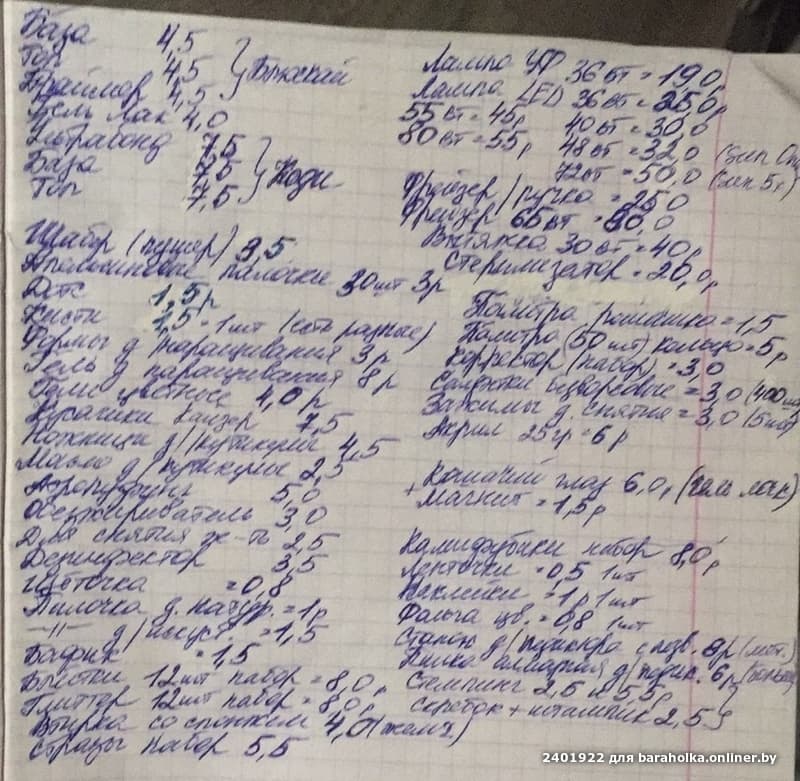 База 4,5
Топ 4,5
Праймер 4,5 } Блюскай
Гель лак 4,0
Ультрабонд 7,5
База 7,5
Топ 7,5 } Коди
Шабер (пушер) 3,5
Апельсиновые палочки 30шт 3р
Дотс 1,5р
Кисти 3,5 = 1шт (есть разные)
Формы д/наращивания 3р
Гель д/наращивания 8р
Гели цветные 4,0р
Кусачики 7,5
Ножницы д/кутикулы 4,5
Масло д/кутикулы 2,5
Аэропуффинг 5,0
Обезжириватель 3,0
Для снятия 2,5
Дезинфектор 3,5
Щёточка = 0,8
Пилочка д. натур. = 1р
—"— д/искуст. = 1,5
Бафик = 1,5
Блёстки 12шт набор = 8,0р
Глиттер 12шт набор = 8,0р
Втирка со спонжем 4,0 (жемч.)
Стразы набор 5,5
Лампа УФ 36вт = 19,0
Лампа LED 36вт = 25,0р
55вт = 45р 40вт = 30,0
80вт = 55р 48вт = 32,0
72вт = 50,0
Фрейзер/ручка = 25,0
Фрейзер 65вт = 80,0
Вытяжка 30вт = 40р
Стерилизатор = 20,0р
Палитра ромашка = 1,5
Палитра (50шт) кольцо = 5р
Корректор (набор) = 3,0
Салфетки безворсовые = 3,0 (400шт)
Зажимы д. снятия = 3,0 (5шт)
Акрил 25гр = 6р
+ Кошачий глаз 6,0р (гель лак)
Магнит = 1,5р
Камифубики набор 8,0р
Ленточки = 0,5 1шт
Наклейки = 1р 1шт
Фольга цв. = 0,8 1шт
д/педикюра 8р
Пилка алмазная д/педик. 6р
Стемпинг 2,5 и 5,5р
Скребок + штампик 2,5
2401922 для baraholka.onliner.by